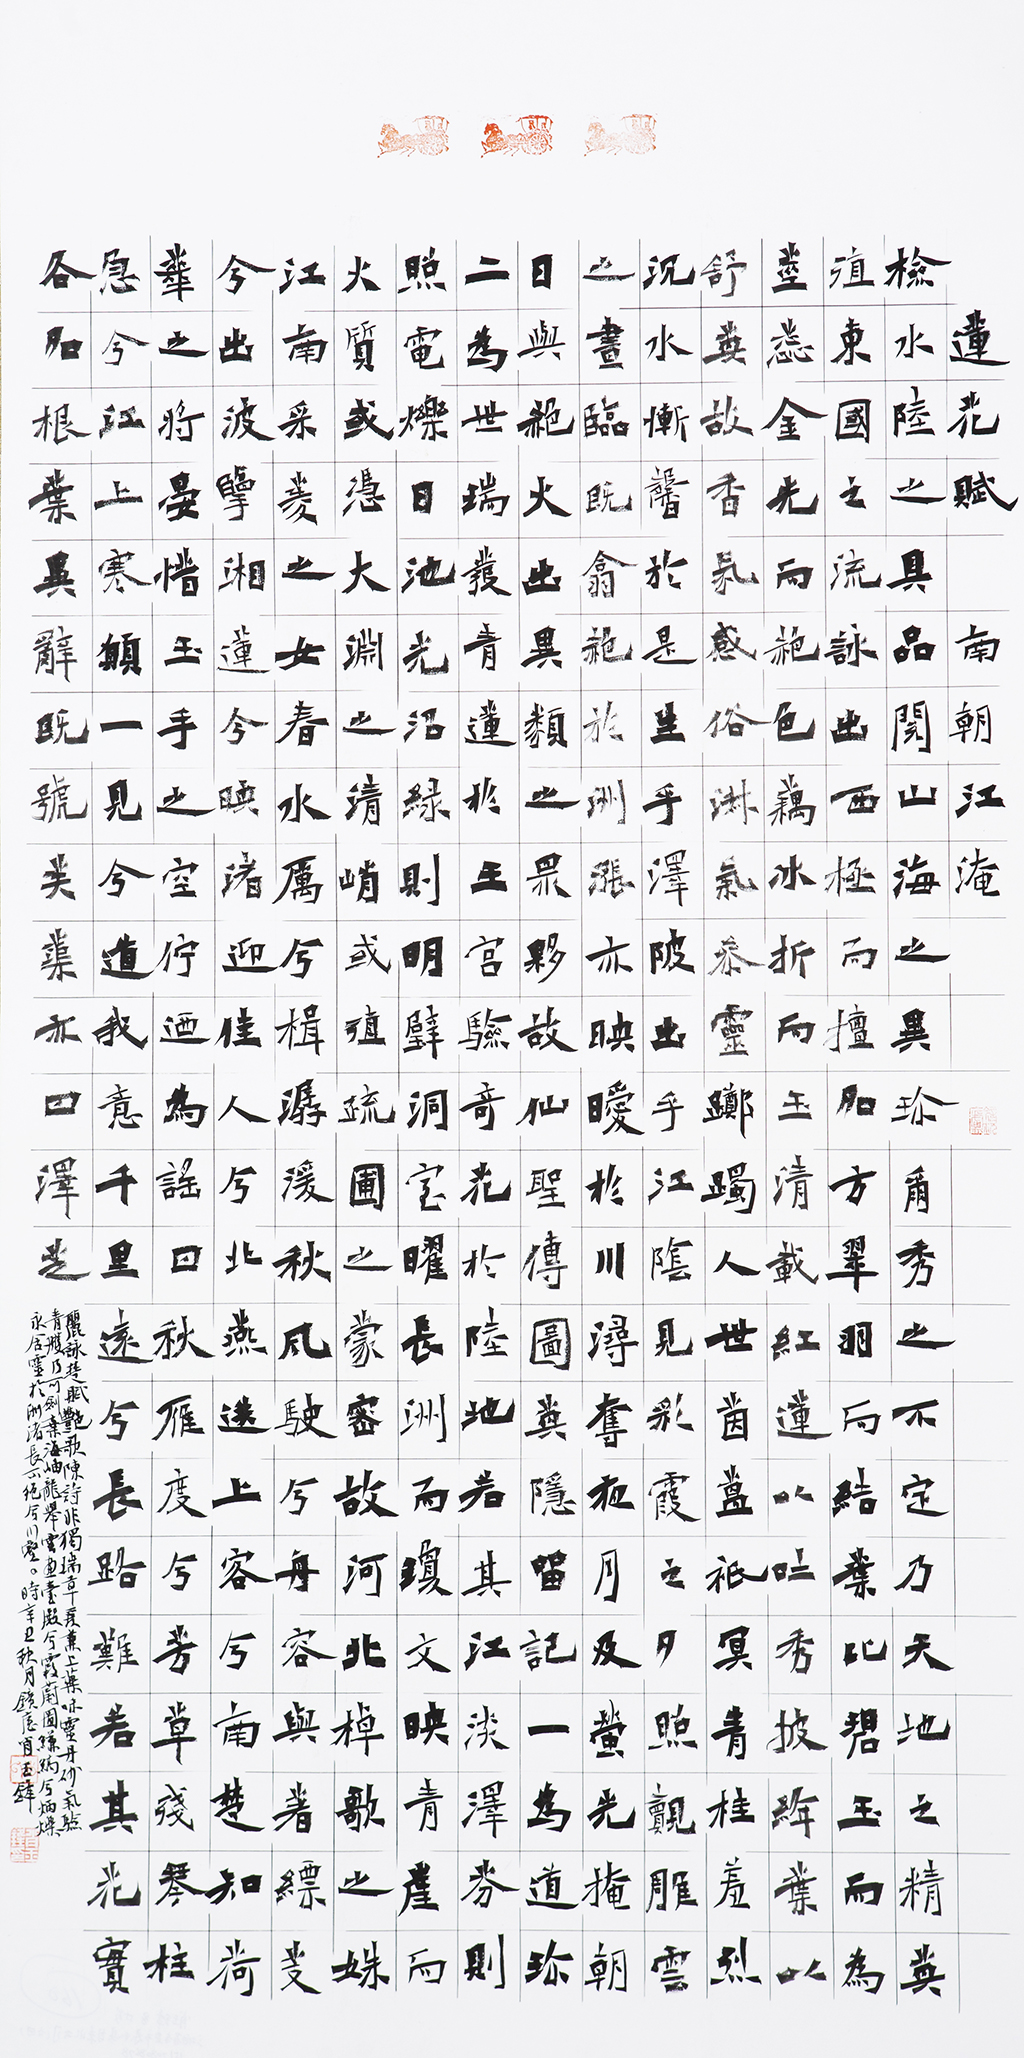 蓮花賦 南朝江淹
檢水陸之具品閱山海之異珍爾秀之不定乃天地之精英
殖東國之流詠出西極而擅加方翠羽而結葉比碧玉而為
莖蕊金光而絕色藕冰折而玉清載紅蓮以吐秀披絳葉以
舒英故香氣感俗淋氣參靈躑躅人世茵蒀祇冥青桂羞烈
沉水慚馨於是生乎澤陂出乎江陰見彩霞之夕照覿雕雲
之晝臨既翕絕於洲漲亦映曖於川潯奪夜月及螢光掩朝
日與絕火出異類之眾夥故仙聖傳圖英隱留記一為道珍
二為世瑞發青蓮於王宮驗奇花於陸地若其江淡澤芬則
照電爍日池光沼綠則明璧洞室曜長洲而瓊文映青崖而
火質或憑大淵之清峭或殖疏圃之蒙密故河北棹歌之姝
江南采菱之女春水厲兮楫潺湲秋風駛兮舟容與著縹芰
兮出波擎湘蓮兮映渚迎佳人兮北燕送上容兮南楚知荷
華之將晏惜玉手之空佇迺為謠曰秋雁度兮芳草殘琴柱
急兮江上寒願一見兮道我意千里遠兮長路難若其花實
各加根葉異辭既號芙蕖亦曰澤芝
麗詠楚賦艷歌陳詩非獨瑞草爰兼上藥味靈丹砂氣驗
青雘乃可劍葉海岫龍舉雲畫臺殿兮霞蔚圖縑縞兮炳爍
永居靈於洲渚長不絕兮川壑。時辛丑秋月鏡庵肖玉鋒